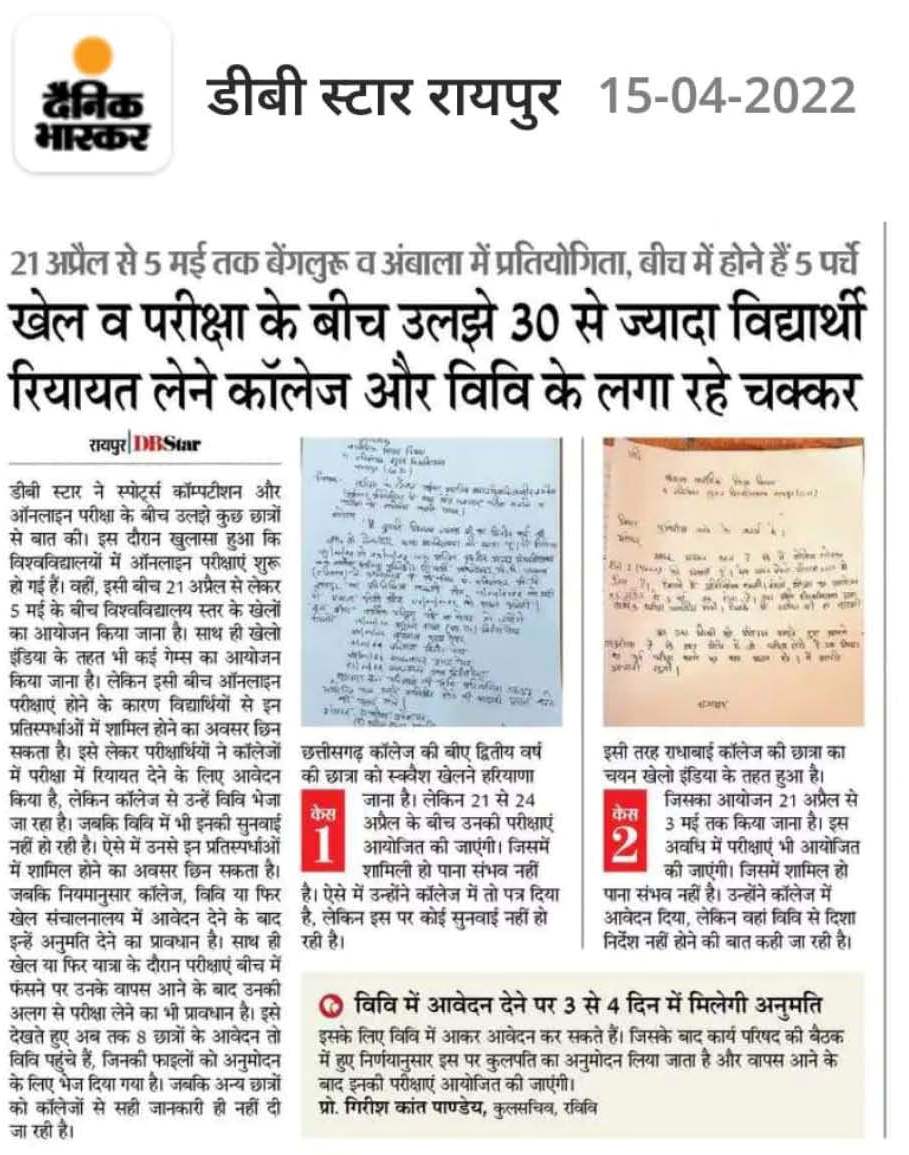 दैनिक
भास्कर
डीबी स्टार रायपुर 15-04-2022
21 अप्रैल से 5 मई तक बेंगलुरू व अंबाला में प्रतियोगिता, बीच में होने हैं 5 पर्चे
खेल व परीक्षा के बीच उलझे 30 से ज्यादा विद्यार्थी
रियायत लेने कॉलेज और विवि के लगा रहे चक्कर
रायपुर|DBStar
डीबी स्टार ने स्पोर्ट्स कॉम्पटीशन और
ऑनलाइन परीक्षा के बीच उलझे कुछ छात्रों
से बात की। इस दौरान खुलासा हुआ कि
विश्वविद्यालयों में ऑनलाइन परीक्षाएं शुरू
हो गई हैं। वहीं, इसी बीच 21 अप्रैल से लेकर
5 मई के बीच विश्वविद्यालय स्तर के खेलों
का आयोजन किया जाना है। साथ ही खेलो
इंडिया के तहत भी कई गेम्स का आयोजन
किया जाना है। लेकिन इसी बीच ऑनलाइन
परीक्षाएं होने के कारण विद्यार्थियों से इन
प्रतिस्पर्धाओं में शामिल होने का अवसर छिन
सकता है। इसे लेकर परीक्षार्थियों ने कॉलेजों
में परीक्षा में रियायत देने के लिए आवेदन
किया है, लेकिन कॉलेज से उन्हें विवि भेजा
जा रहा है। जबकि विवि में भी इनकी सुनवाई
नहीं हो रही है। ऐसे में उनसे इन प्रतिस्पर्धाओं
में शामिल होने का अवसर छिन सकता है।
जबकि नियमानुसार कॉलेज, विवि या फिर
खेल संचालनालय में आवेदन देने के बाद
इन्हें अनुमति देने का प्रावधान है। साथ ही
खेल या फिर यात्रा के दौरान परीक्षाएं बीच में
फंसने पर उनके वापस आने के बाद उनकी
अलग से परीक्षा लेने का भी प्रावधान है। इसे
देखते हुए अब तक 8 छात्रों के आवेदन तो
विवि पहुंचे हैं, जिनकी फाइलों को अनुमोदन
के लिए भेज दिया गया है। जबकि अन्य छात्रों
को कॉलेजों से सही जानकारी ही नहीं दी
जा रही है।
छत्तीसगढ़ कॉलेज की बीए द्वितीय वर्ष
की छात्रा को स्क्वैश खेलने हरियाणा
केस
1
जाना है। लेकिन 21 से 24
अप्रैल के बीच उनकी परीक्षाएं
आयोजित की जाएंगी। जिसमें
शामिली हो पाना संभव नहीं
है। ऐसे में उन्होंने कॉलेज में तो पत्र दिया
है, लेकिन इस पर कोई सुनवाई नहीं हो
रही है।
इसी तरह राधाबाई कॉलेज की छात्रा का
चयन खेलो इंडिया के तहत हुआ है।
केस
2
जिसका आयोजन 21 अप्रैल से
3 मई तक किया जाना है। इस
अवधि में परीक्षाएं भी आयोजित
की जाएंगी। जिसमें शामिल हो
पाना संभव नहीं है। उन्होंने कॉलेज में
आवेदन दिया, लेकिन वहां विवि से दिशा
निर्देश नहीं होने की बात कही जा रही है।
विवि में आवेदन देने पर 3 से 4 दिन में मिलेगी अनुमति
इसके लिए विवि में आकर आवेदन कर सकते हैं। जिसके बाद कार्य परिषद की बैठक
में हुए निर्णयानुसार इस पर कुलपति का अनुमोदन लिया जाता है और वापस आने के
बाद इनकी परीक्षाएं आयोजित की जाएंगी।
प्रो. गिरीश कांत पाण्डेय, कुलसचिव, रविवि